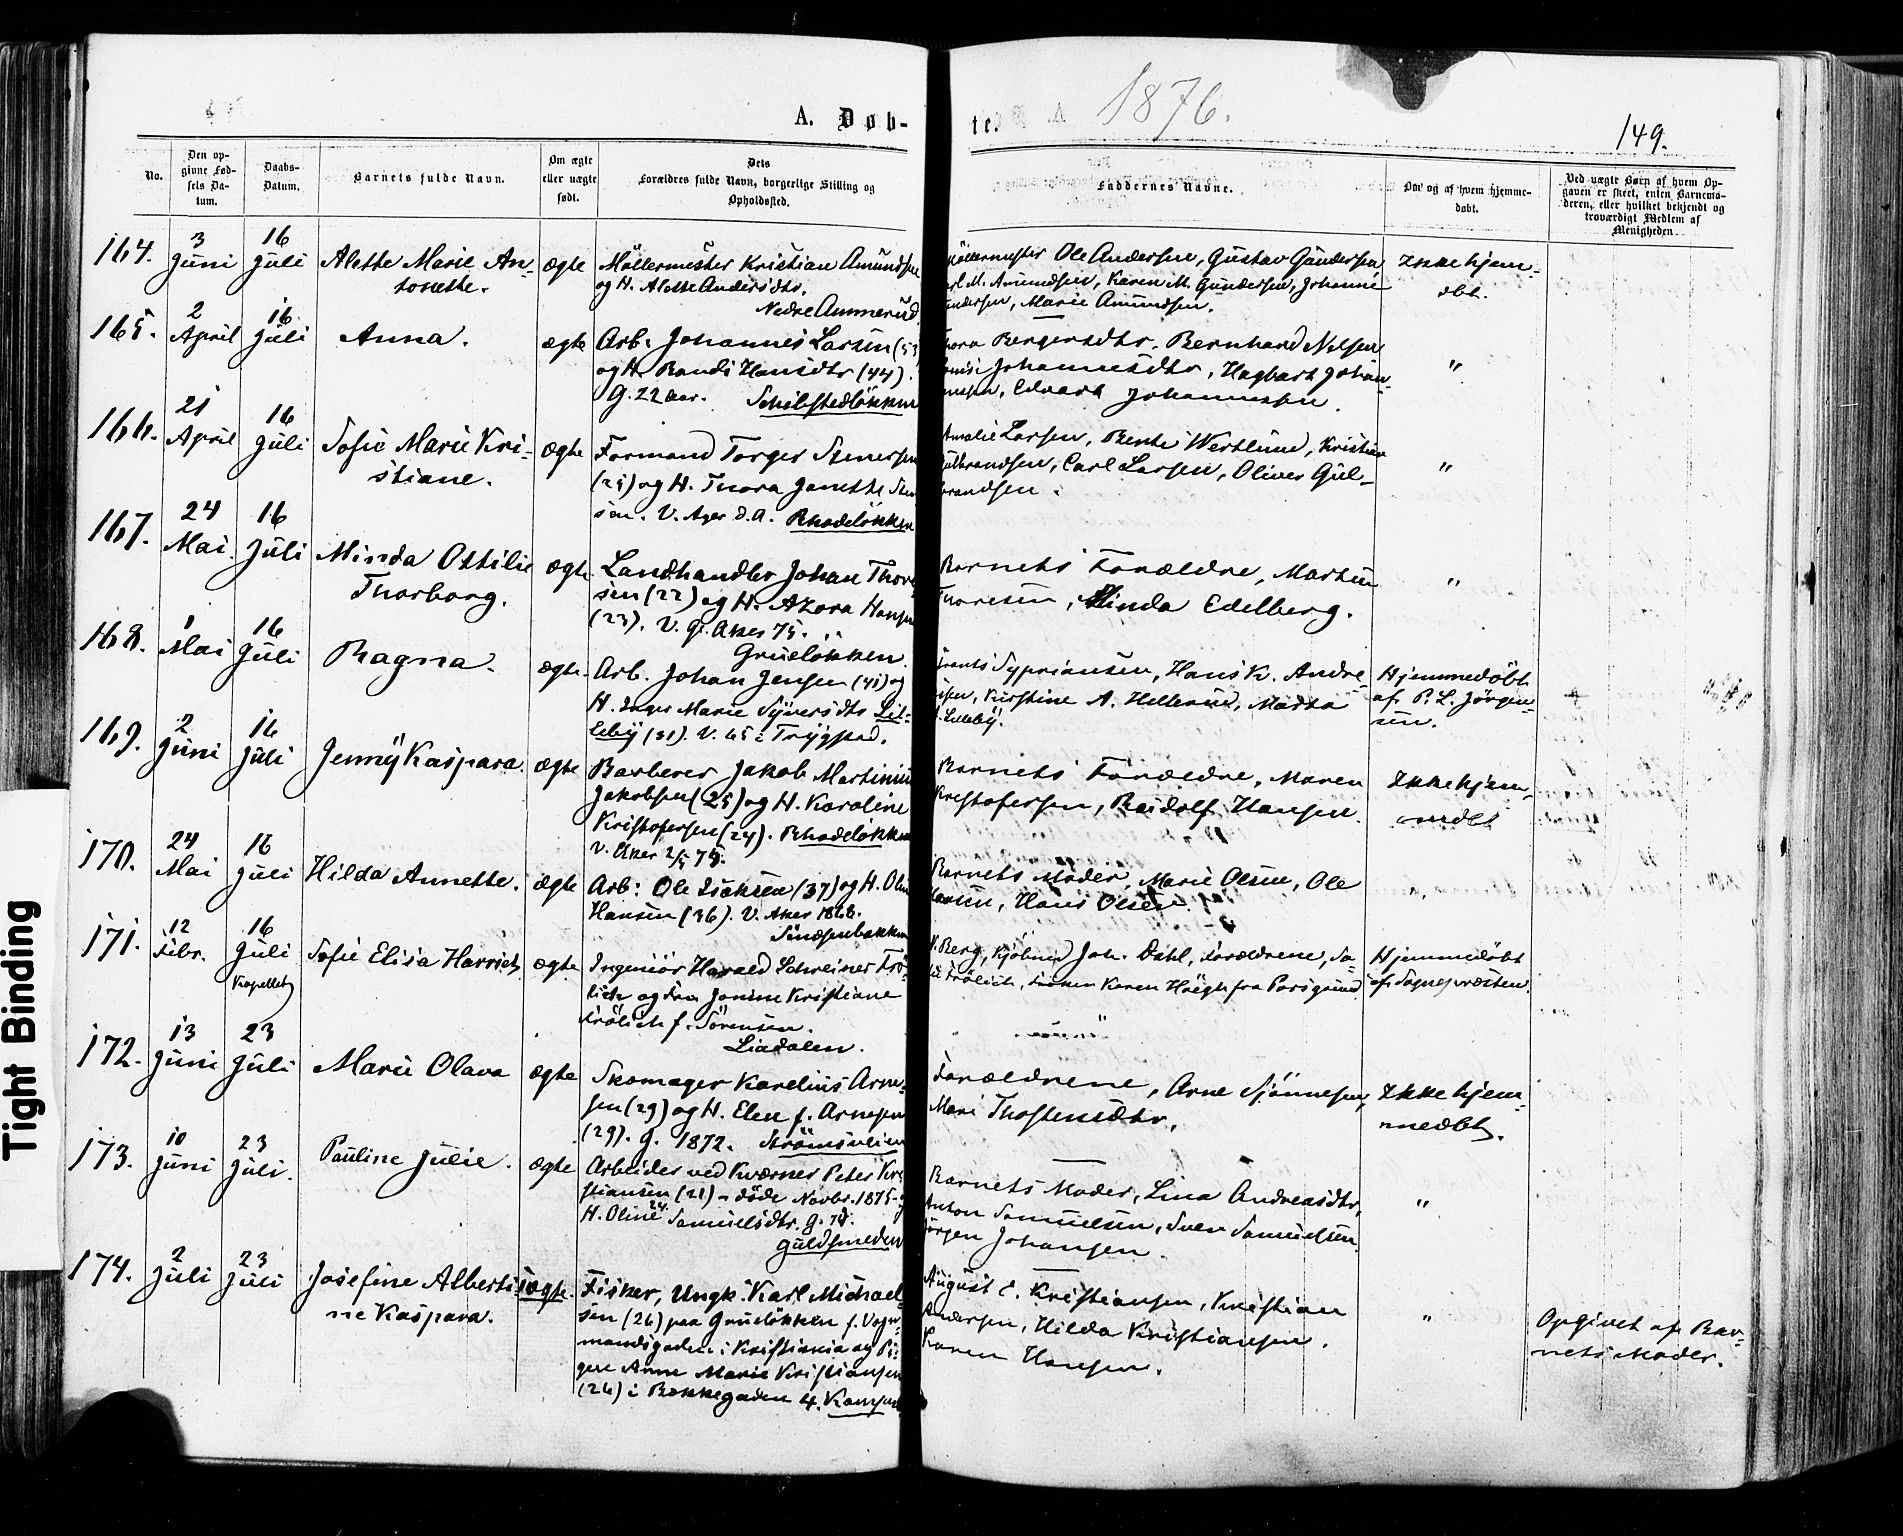 A. Døb-
te.
1876.
149.
No.
Den op-
givne Fød-
sels Da-
tum.
Daabs-
Datum.
Barnets fulde Navn.
Om ægte
eller uægte
født.
Dets
Forældres fulde Navn, borgerlige Stilling og
Opholdssted.
Faddernes Navne.
Om og af hvem hjemme-
døbt.
Ved uægte Børn af hvem Op-
gaven er skeet, enten Barnemo-
deren, eller hvilket bekjendt og
troværdigt Medlem af
Menigheden.
164.
3
Juni
16
Juli
Alette Marie An-
tonette.
ægte
Møllermester Kristian Amundsen
og H. Alette Andersdtr.
Nedre Ammerud.
Ole Andersen, Gustav Gundersen
M. Amundsen, Karen M. Gundersen, Johanne
Marie Amundsen.
Ikke hjem-
dbt.
165.
2
April
16
Juli
Anna.
ægte
Arb. Johannes Larsen (53
og H. Randi Hansdtr (44).
G. 22 Aar. Schibstedløkken
Thora Bergersdtr. Bernhard Nilsen
Johannesdtr, Hagbart Johan-
nesen, Edvart Johannesen.
"
166.
21
April
16
Juli
Sofie Marie Kri-
stiane.
ægte
Formand Torger Stenersen
(25) og H. Thora Janette
sen. V. Ager d. A. Rhodeløkken
Amalie Larsen, Bente Westlund, Kristian
Gulbrandsen, Carl Larsen, Oliver Gul-
brandsen.
"
167.
24
Mai
16
Juli
Minda Ottilie
Thorborg.
ægte
Landhandler Johan Thore
sen (22) og H. Azora Hansen
(23). V. Gr. Aker 75.
Grüeløkken.
Barnets Forældre, Martin
Thoresen, Minda Edelberg.
"
168.
1
Mai
16
Juli
Ragna.
ægte.
Arb. Johan Jensen (41) og
H. Inger Marie Syversdtr Lil-
leby (31). V. 65 i Trygstad.
Frants Sypriansen, Hans K. Andre-
sen, Kirstine A. Hellerud, Martha
Lilleby.
Hjemmedøbt
af P. L. Jørgen-
sen.
169.
2
Juni
16
Juli
Jenny Kaspara.
ægte
Barberer Jakob Martinius
Jakobsen (25) og H. Karoline
Kristofersen (24). Rhodeløkken
V. Aker 2/5 75.
Barnets Forældre, Maren
Kristofersen, Raidolf Hansen.
Ikke hjem-
medbt
170.
24
Mai
16
Juli
Hilda Annette.
ægte
Arb: Ole Isaksen (37) og H. Oline
Hansen (36). V. Aker 1868.
Sinsenbakken
Barnets Moder, Marie Olsen, Ole
Larsen, Hans Olsen.
"
171.
12
Febr.
16
Juli
Kapellet
Sofie Elisa Harriet
ægte
Ingeniør Harald Schreiner Frø-
lich og Fru Janine Kristiane
Frølich f. Sørensen.
Liadalen.
Berg, Kjøbmd Joh. Dahl, Forældrene, So-
Frølich, Frøken Karen Høegh fra Porsgrund
Hjemmedøbt
af Sognepræsten.
172.
13
Juni
23
Juli
Marie Olava
ægte
Skomager Karelius Arne-
sen (29) og H. Elen f. Arnesen
(29). G. 1872. Strømsveien
Forældrene, Arne Sjønnesen,
Mari Thostensdtr,
Ikke hjem-
medbt.
173.
10
Juni
23
Juli.
Pauline Julie.
ægte
Arbeider ved Kværner Peter Kri
stiansen (21) - døde Novbr. 1875 - og
H. Oline 24 Samuelsdtr. G. 74.
Guldsmeden
Barnets Moder, Lina Andreasdtr,
Anton Samuelsen, Sven Samuelsen,
Jørgen Johansen.
"
174.
2
Juli
23
Juli
Josefine Alberti-
ne Kaspara.
uægte.
Fisker, Ungk. Karl Michael-
sen (26) paa Grüeløkken f. Vogn-
mandsgaden i Kristiania og Pi-
gen Anne Marie Kristiansen
(26) i Bækkegaden 4. Kampen
August E. Kristiansen, Kristian
Andersen, Hilda Kristiansen.
Karen Hansen.
"
Opgivet af Bar-
nets Moder.
Tight Binding